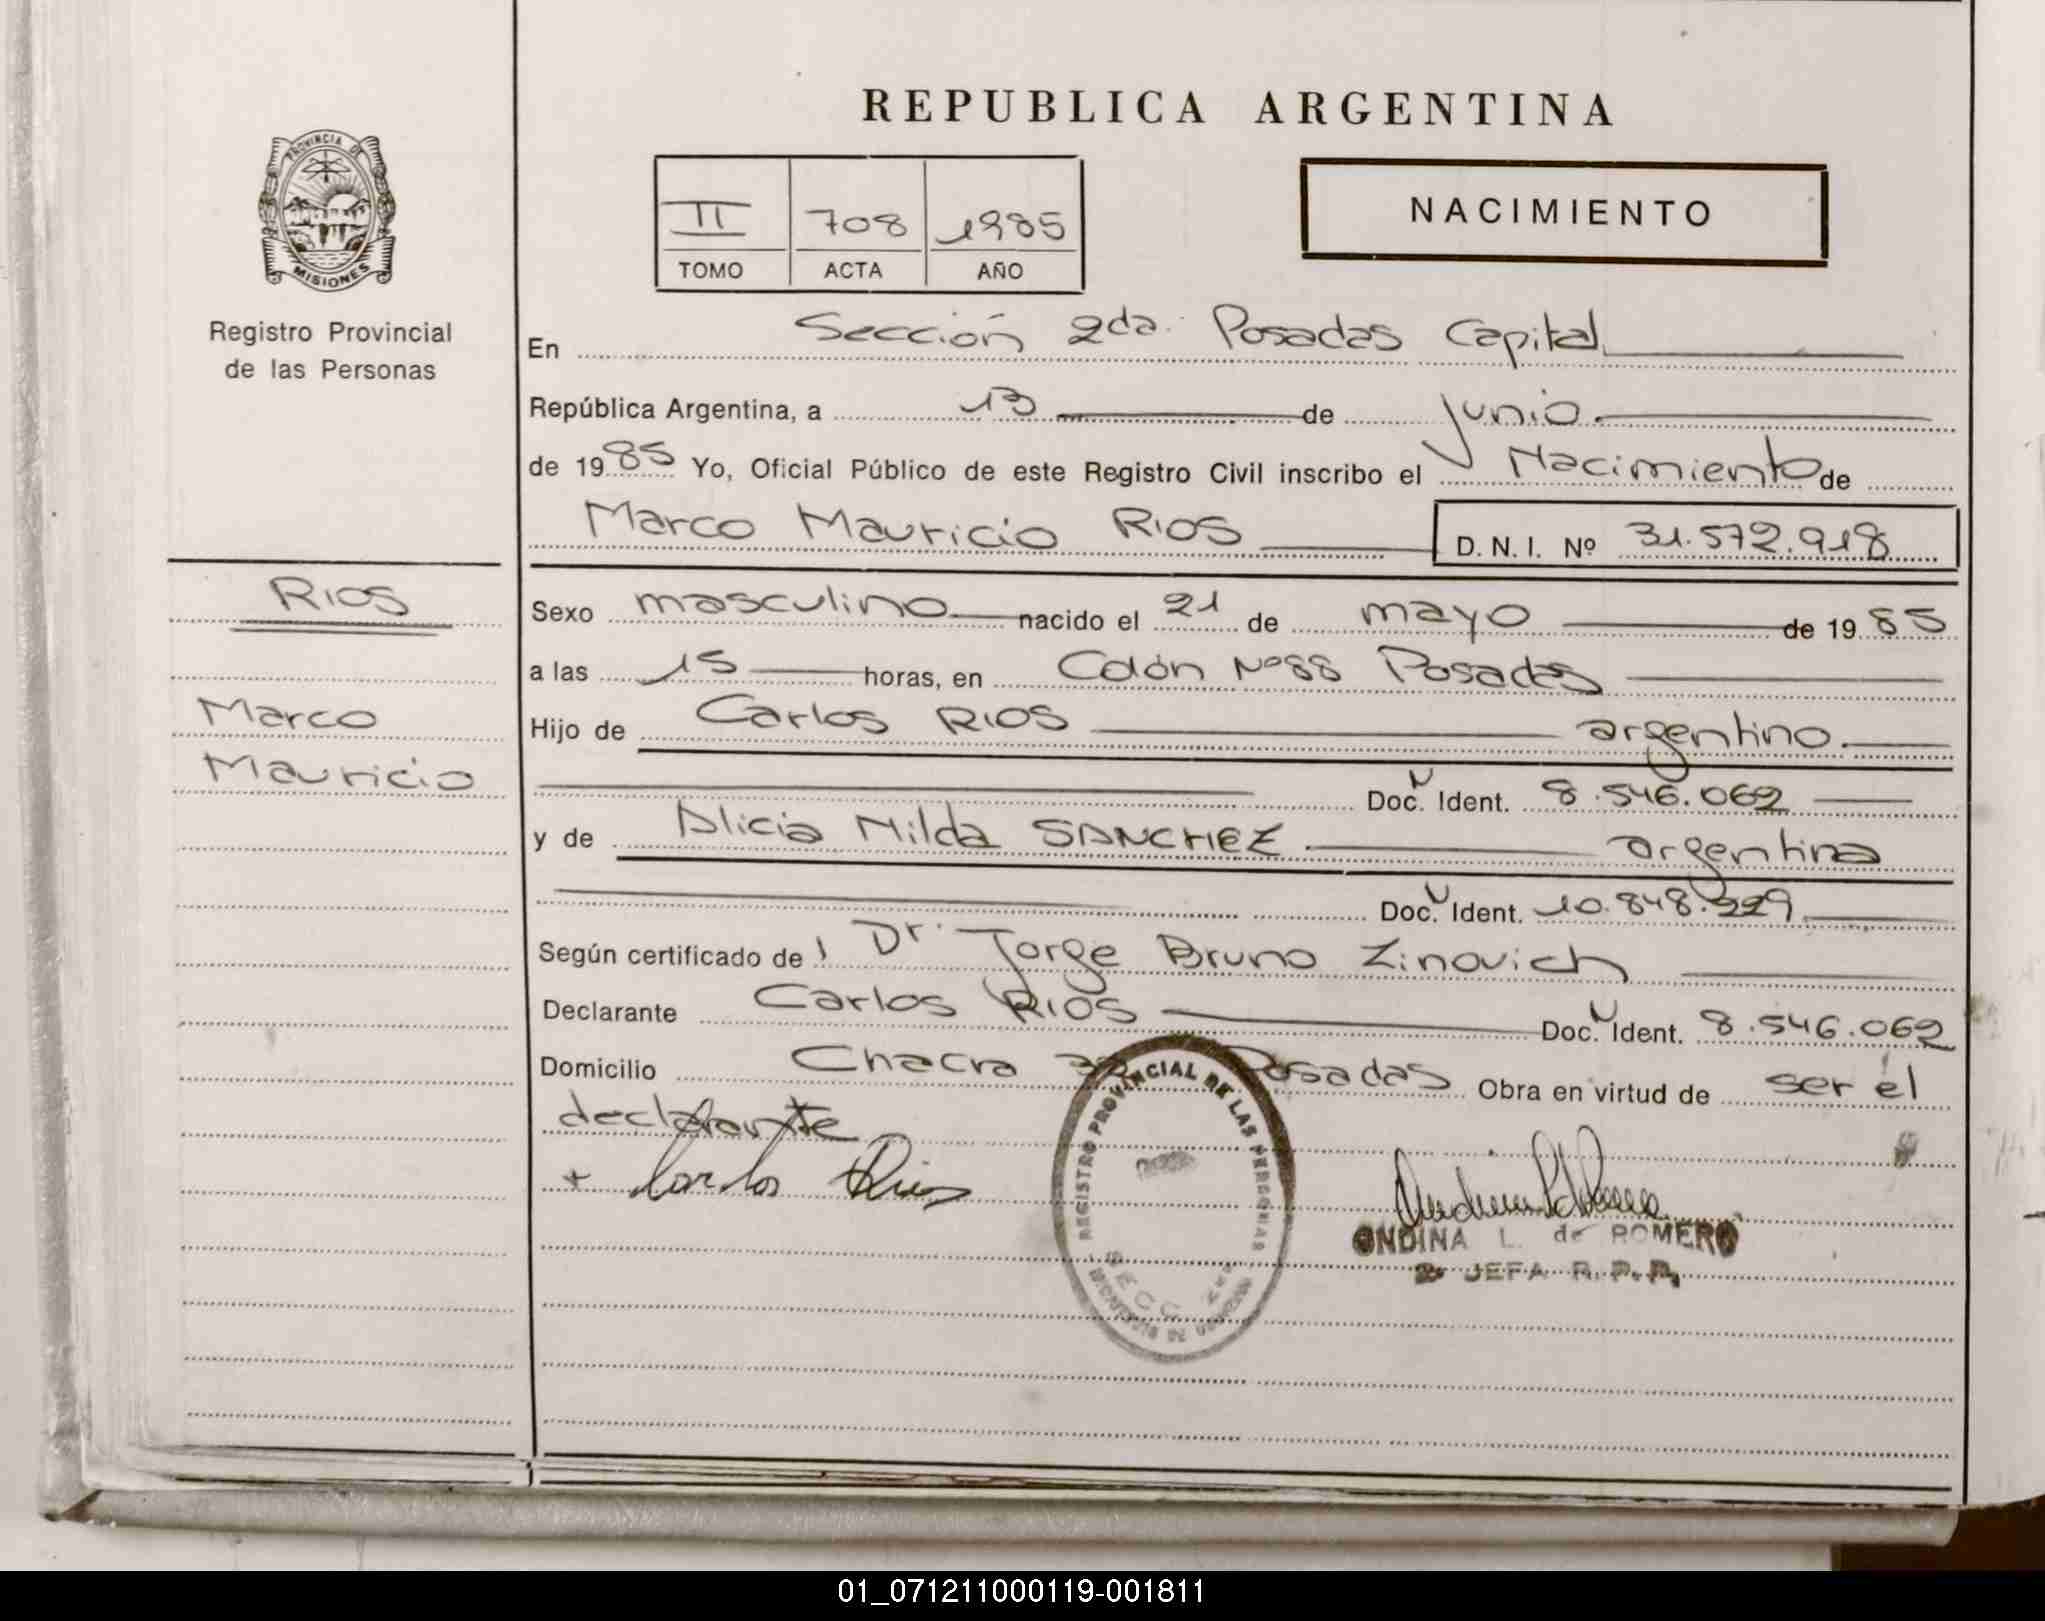 REPUBLICA ARGENTINA
PROVINCIA DE
MISIONES
Registro Provincial
de las Personas
II 708 1985
TOMO ACTA AÑO
NACIMIENTO
En Sección 2da. Posadas Capital
República Argentina, a 13 de junio
de 1985 Yo, Oficial Público de este Registro Civil inscribo el Nacimiento de
Marco Mauricio RIOS D. N. I. Nº 31.572.918
RIOS
Marco
Mauricio
Sexo masculino nacido el 21 de mayo de 1985
a las 15 horas, en Colón Nº 88 Posadas
Hijo de Carlos RIOS argentino
Doc. Ident. 8.546.062
y de Alicia Nilda SANCHEZ argentina
Doc. Ident. 10.848.229
Según certificado de l Dr. Jorge Bruno Zinovich
Declarante Carlos RIOS Doc. Ident. 8.546.062
Domicilio Chacra Posadas Obra en virtud de ser el
declarante
+ Carlos Rios
REGISTRO PROVINCIAL DE LAS PERSONAS
SECC
ONDINA L. de ROMERO
JEFA R. P. P.
01_071211000119-001811